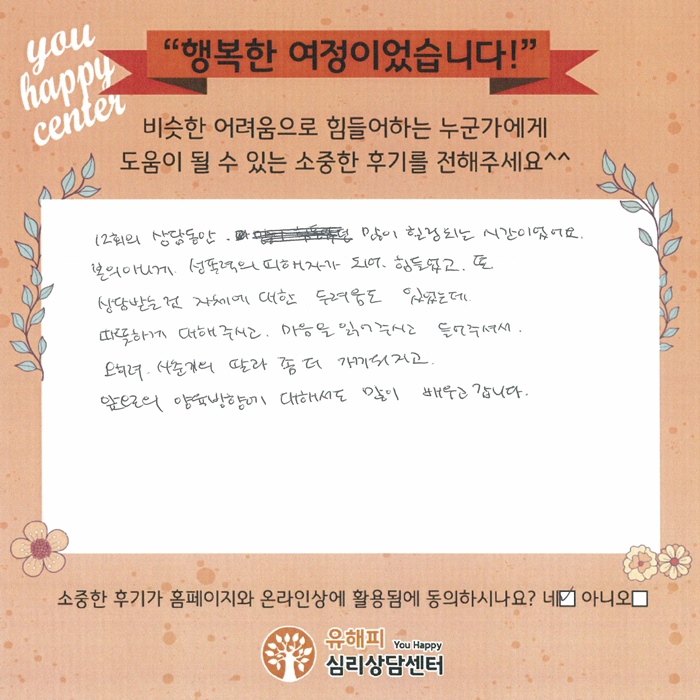 you
happy
center
“행복한 여정이었습니다!”
비슷한 어려움으로 힘들어하는 누군가에게
도움이 될 수 있는 소중한 후기를 전해주세요^^
12회의 상담동안. 많이 힐링되는 시간이었어요.
본의아니게. 성폭력의 피해자가 되어. 힘들었고. 또
상담받는것 자체에 대한 두려움도 있었는데
따뜻하게 대해주시고. 마음을 읽어주시고 들어주셔서.
오히려. 사춘기의 딸과 좀 더 가까워지고.
앞으로의 양육방향에 대해서도 많이 배우고 갑니다.
소중한 후기가 홈페이지와 온라인상에 활용됨에 동의하시나요? 네 아니오
유해피 You Happy
심리상담센터